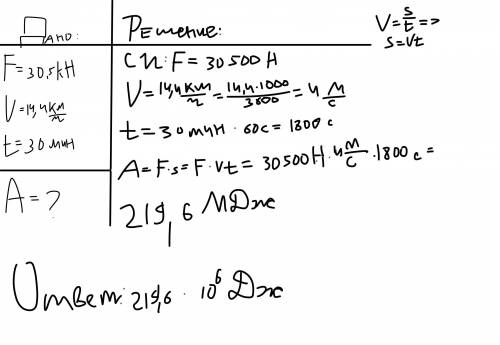 Дано:
F=30,5кН
V=14,4 км/ч
t=30 мин
A=?
Решение:
СИ: F=30500 Н
V=14,4 км/ч=14,4·1000/3600=4 м/с
t=30 мин·60с=1800 с
A=F·s=F·vt=30500Н·4 м/с·1800 с=
219,6 МДж
V=s/t=>
s=Vt
Ответ: 219,6·10⁶ Дж